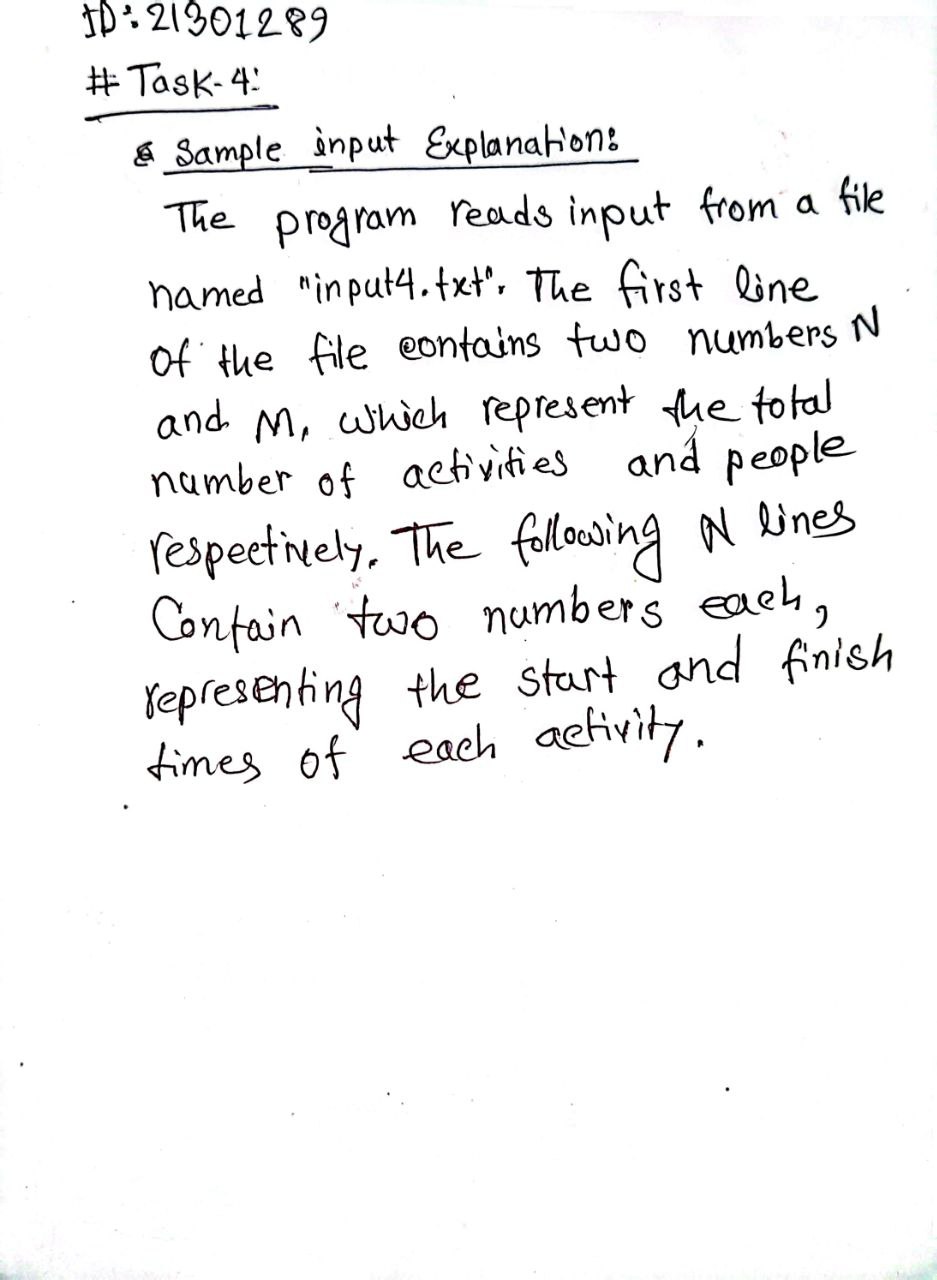 ID: 21301289
# Task-4:
Sample input Explanation:
The program reads input from a file
named "input4.txt". The first line
of the file contains two numbers N
and M, which represent the total
number of activities and people
respectively. The following N lines
Contain two numbers each,
representing the start and finish
times of each activity.